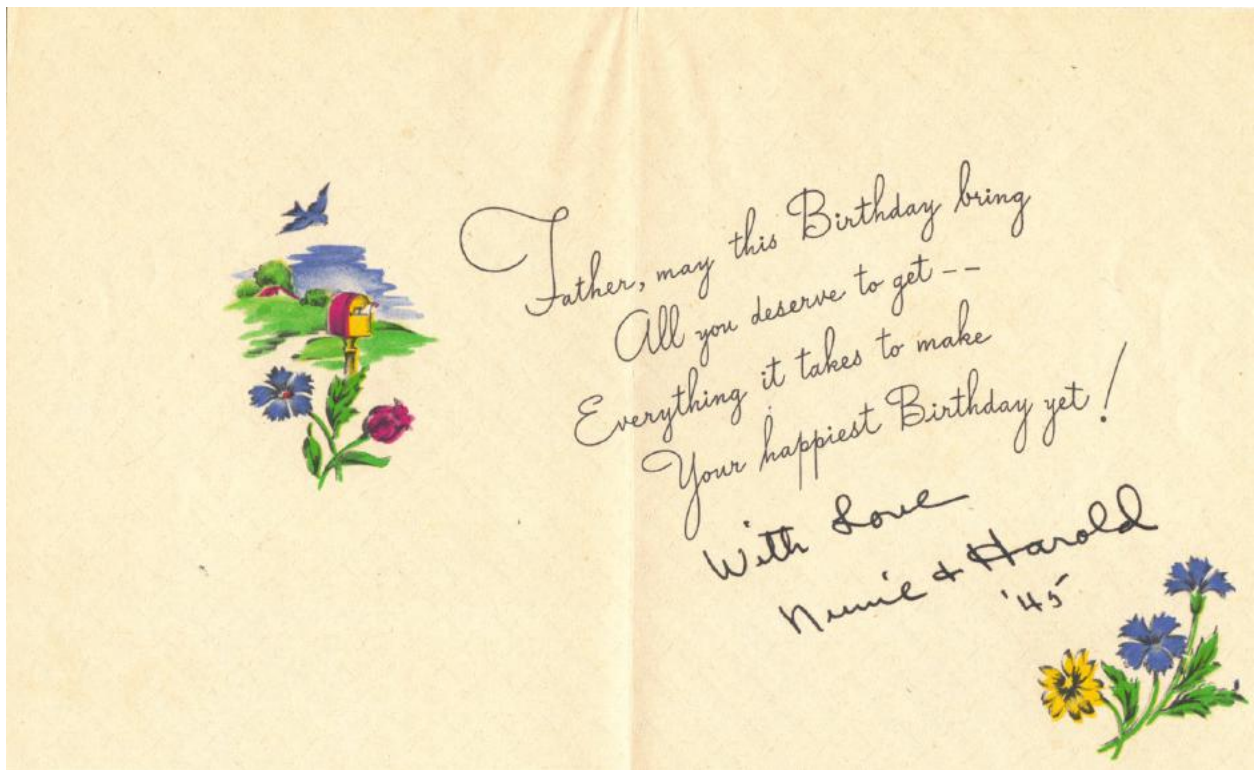 Father, may this Birthday bring
All you deserve to get --
Everything it takes to make
Your happiest Birthday yet!
With Love
& Harold
'45